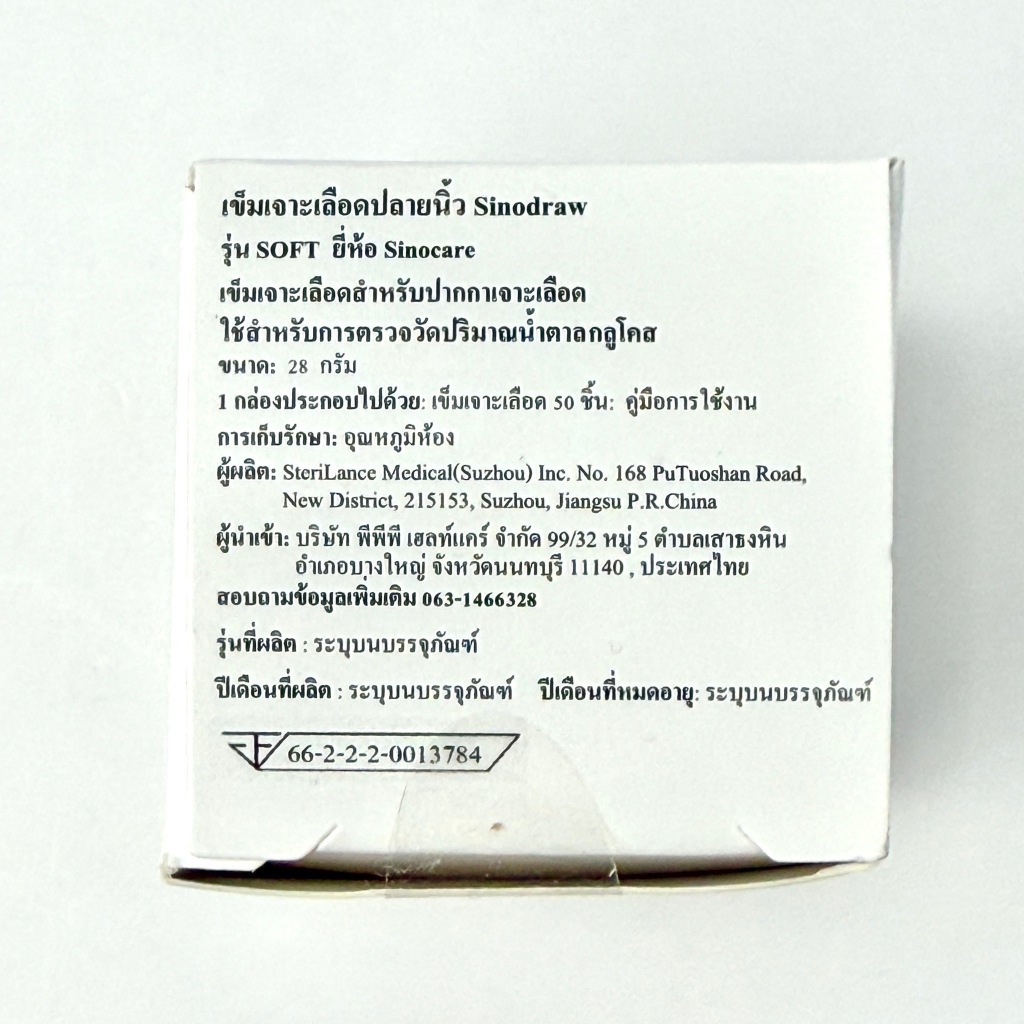 เข็มเจาะเลือดปลายนิ้ว Sinodraw
รุ่น SOFT ยี่ห้อ Sinocare
เข็มเจาะเลือดสำหรับปากกาเจาะเลือด
ใช้สำหรับการตรวจวัดปริมาณน้ำตาลกลูโคส
ขนาด: 28 กรัม
1 กล่องประกอบไปด้วย: เข็มเจาะเลือด 50 ชิ้น: คู่มือการใช้งาน
การเก็บรักษา: อุณหภูมิห้อง
ผู้ผลิต: SteriLance Medical(Suzhou) Inc. No. 168 PuTuoshan Road,
New District, 215153, Suzhou, Jiangsu P.R.China
ผู้นำเข้า: บริษัท พีพีพี เฮลท์แคร์ จำกัด 99/32 หมู่ 5 ตำบลเสาธงหิน
อำเภอบางใหญ่ จังหวัดนนทบุรี 11140 , ประเทศไทย
สอบถามข้อมูลเพิ่มเติม 063-1466328
รุ่นที่ผลิต : ระบุบนบรรจุภัณฑ์
ปีเดือนที่ผลิต : ระบุบนบรรจุภัณฑ์ ปีเดือนที่หมดอายุ: ระบุบนบรรจุภัณฑ์
66-2-2-2-0013784